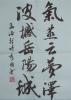 氣蒸云夢澤
波撼岳陽城